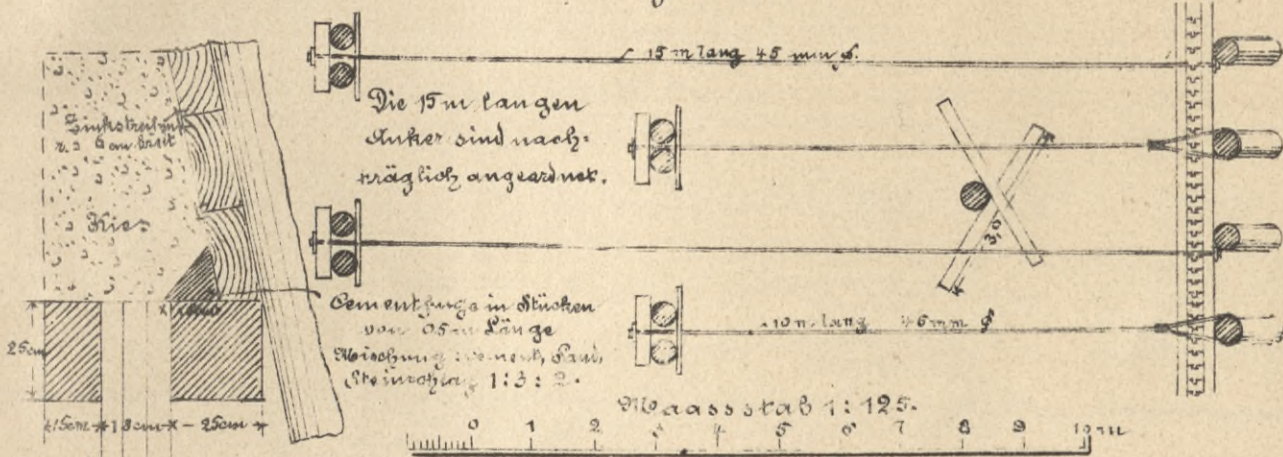 15 m lang 45 mm ø.
Die 15 m langen
Anker sind nach-
träglich angeordnet.
Kies
Cementfuge in Stücken
von 0,5 m Länge
Mischung: Cement, Sand,
Steinschlag 1:3:2.
3,0
10 m lang
25cm
15cm
18cm
25cm
Maassstab 1:125.
0 1 2 3 4 5 6 7 8 9 10 m